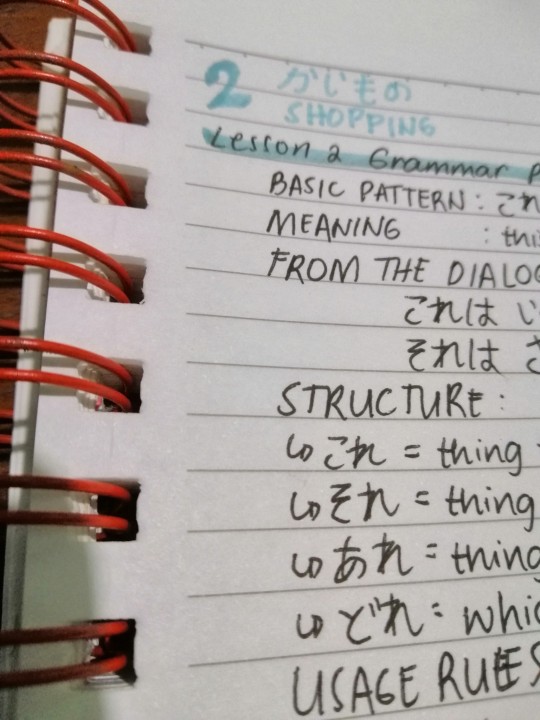 2 かじもの
SHOPPING
Lesson 2 Grammar P
BASIC PATTERN : これ
MEANING : thi
FROM THE DIALOG
これは じ
それは さ
STRUCTURE :
↳ これ = thing
↳ それ = thing
↳ あれ = thing
↳ どれ = whic
USAGE RULES